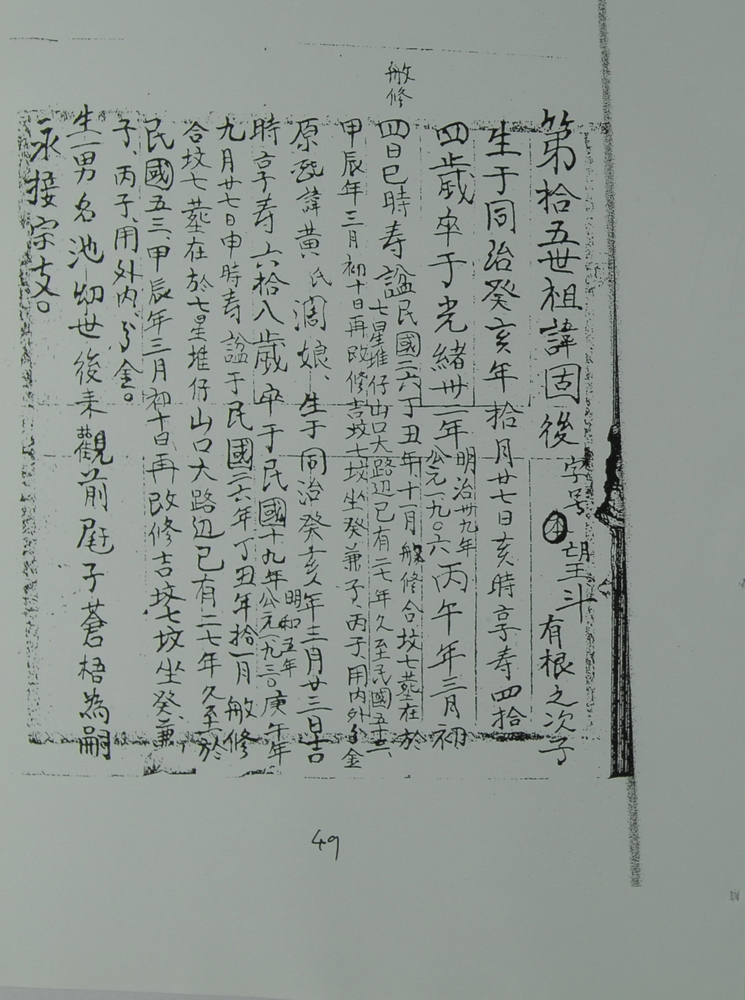 第拾五世祖諱固後 字号 本 望斗 有根之次子
生于同治癸亥年拾月廿七日亥時享寿四拾
四歲卒于光緒卅二年 明治卅九年 公元一九0六 丙午年三月初
四日巳時寿諡民國二六丁丑年十一月 修合坟七墓在於
七星堆仔山口大路辺已有二七年久至民國五十三
甲辰年三月初十日再改修吉坟七坟坐癸兼子、丙子、用内外分金
原配諱黃氏 娘、生于同治癸亥年三月廿三日吉
時享寿六拾八歲卒于民國十九年 昭和五年 公元一九三0 庚午年
九月廿七日申時寿諡于民國二六年丁丑年拾一月 修
合坟七墓在於七星堆仔山口大路辺已有二七年久至於
民國五三、甲辰年三月初十日再改修吉坟七坟坐癸兼
子、丙子、用外内分金。
生一男名池幼世後来觀前 子蒼梧為嗣
永接宗支。
修
49